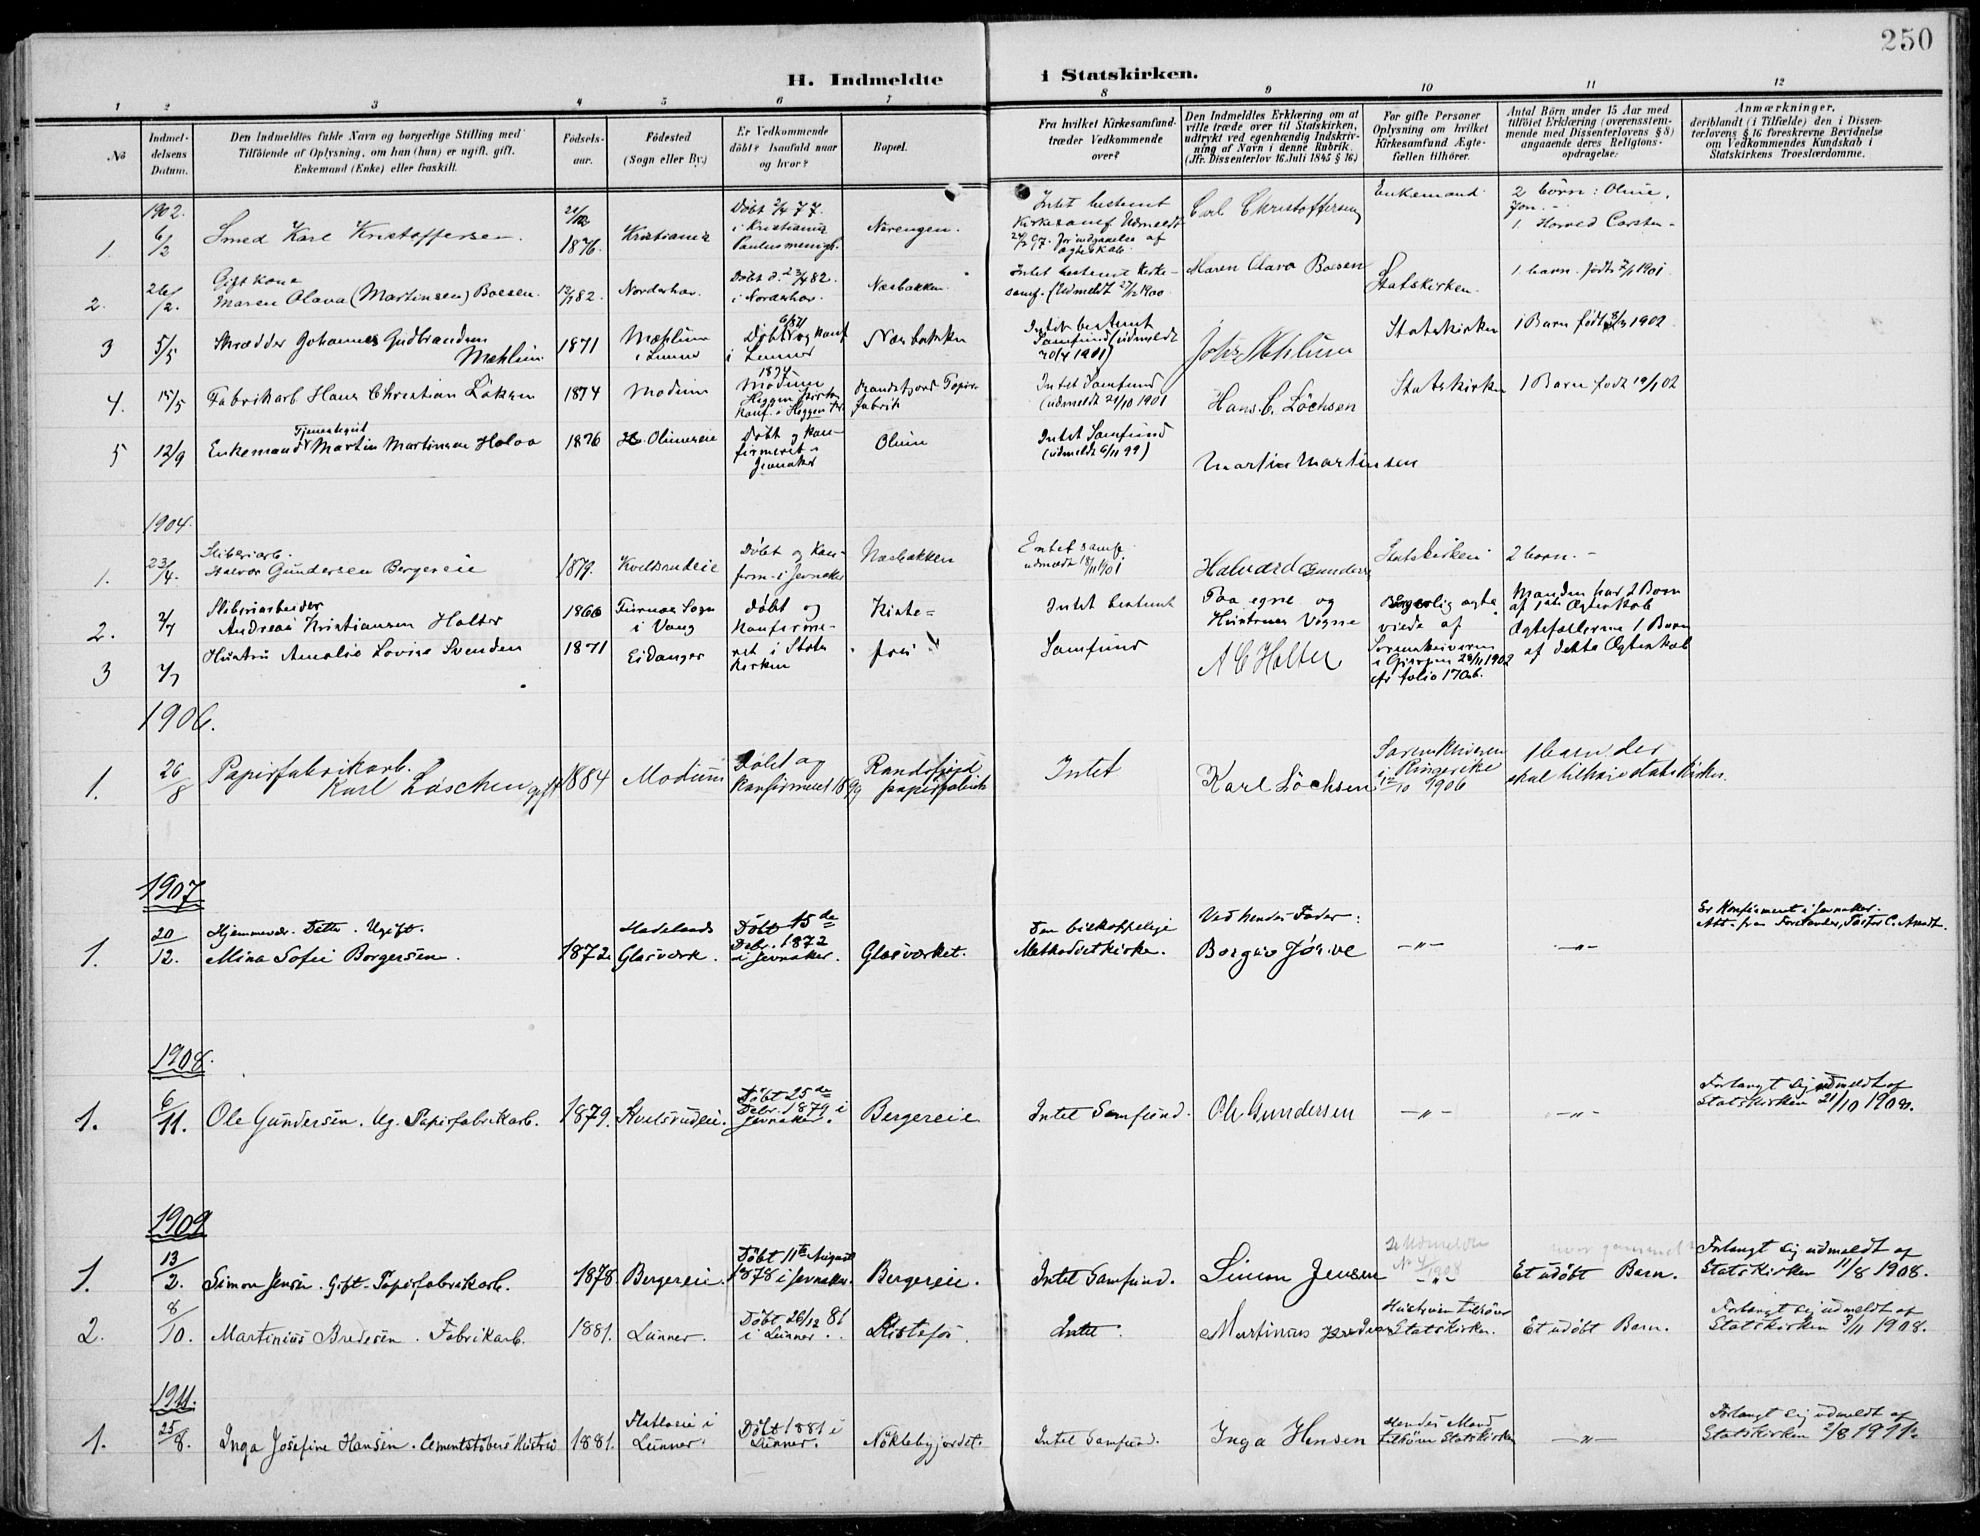 250
H. Indmeldte i Statskirken.
1 2 3 4 5 6 7 8 9 10 11 12
No
Indmeldelsens Datum.
Den Indmeldtes fulde Navn og borgerlige Stilling med
Tilføiende af Oplysning, om han (hun) er ugift, gift,
Enkemand (Enke) eller fraskilt.
Fødselsaar.
Fødested
(Sogn eller By.)
Er Vedkommende
døbt? Isaafald naar
og hvor?
Bopæl.
Fra hvilket Kirkesamfund
træder Vedkommende
over?
Den Indmeldtes Erklæring om at
ville træde over til Statskirken,
udtrykt ved egenhændig Indskrivning af Navn i denne Rubrik.
(Jfr. Dissenterlov 16 Juli 1845 § 16.)
For gifte Personer
Oplysning om hvilket
Kirkesamfund Ægtefællen tilhører.
Antal Børn under 15 Aar med
tilføiet Erklæring (overensstemmende med Dissenterlovens § 8)
angaaende deres Religionsopdragelse:
Anmærkninger,
deriblandt (i Tilfælde) den i Dissenterlovens § 16 foreskrevne Bevidnelse
om Vedkommendes Kundskab i
Statskirkens Troeslærdomme.
1902.
1. 6/2
Smed Karl Kristoffersen.
1876.
Kristiania
Døbt 2/4 77.
i Kristiania
Paulusmenigh.
Nærengen.
Intet bestemt
Kirkesamf. Udmeldt
for indgaaelse af
ægteskab.
Carl Christoffersen
Enkemand
2 børn: Oline,
1 Harald Carsten
2. 26/2
Gift Kone
Maren Olava (Martinsen) Boesen.
12/1 82.
Norderhov.
Døbt d. 23/4 82.
i Norderhov.
Næsbakken.
Intet bestemt Kirkesamf. (Udmeldt 27/12 1900.
Maren Olava Boesen
Statskirken.
1 barn. født 2/1 1901
3 5/5
Skrædder Johannes Gudbrandsen
Mæhlum
1871
Mæhlum
i Lunner
Døbt og konf
i Lunner
Næsbakken
Intet bestemt
Samfund (udmeldt
20/4 1901)
Johs Mehlum
Statskirken
1 Barn født 8/3 1902
4. 15/5
Fabrikarb Hans Christian Løksen
1874
Modum
1874
Modum
Heggen Kirke
Konf. i Heggen
Randsfjord Papirfabrik
Intet Samfund
(udmeldt 21/10 1901
Hans C. Löchsen
Statskirken
1 Barn født 19/1 02
5 12/9
Tjenestegut
Enkemand Martin Martinsen Holoa
1876
Olimseie
Døbt og konfirmeret i
Jevnaker
Olum
Intet Samfund
(udmeldt 6/11 99)
Martin Martinsen
1904.
1. 23/4.
Sliberiarb.
Halvor Gundersen Bergereie
1877.
Kvelsrudeie
Døbt og konfirm. i Jevnaker
Næsbakken
Intet samf.
udmeldt 18/11 01
Halvard Gunders
Statskirken
2 born. -
2. 2/7
Sliberiarbeider
Andreas Kristiansen Holter
1866
Furnæs Sogn
i Vang
Døbt og
konfirmeret i Stats
kirken
Kistefos
Intet bestemt
Samfund
Paa egne og
Hustrues Vegne
A C Holter
Borgerlig ægte
viede af
Sorenskriveren
i Gjerpen 28/11 1902
cfr folio 170 b.
Manden har 2 Børn
af 1ste Ægteskab
Ægtefællerne 1 Barn
af dette Ægteskab
3 2/7
Hustru Amalie Lovise Svendsen
1871
Eidanger
1906.
1. 26/8
Papirfabrikarb.
Karl Løschen gift
1884
Modum
Døbt og
Konfirmeret 1899
Randsfjord
papirfabrik
Intet
Karl Löchsen
Sorenskriveren
i Ringerike
12/10 1906
1 barn, der
skal tilhøre statskirken.
1907
1. 20/12.
Hjemmevær. Datter. Ugift.
Mina Sofie Borgersen.
1872.
Hadelands
Glasværk.
Døbt 15de
Debr. 1872
i Jevnaker.
Glasværket.
Den biskoppelige
Methodistkirke.
Ved hendes Fader:
Borger Jörve
—„—
—„—
Er Konfirmeret i Jevnaker.
Att. fra Forstander, Pastor C. Arndt.
1908.
1. 6/11.
Ole Gundersen. Ug. Papirfabrikarb.
1879.
Kvelsrudeie.
Døbt 25de
Debr. 1879 i
Jevnaker.
Bergereie
Intet Samfund.
Ole Gundersen
—„—
—„—
Forlangt sig udmeldt af
Statskirken 21/10 1908.
1909
1. 13/2.
Simon Jensen. Gift. Papirfabrikarb.
1878
Bergereie.
Døbt 11te August
1878 i Jevnaker.
Bergereie.
Intet Samfund.
Simon Jensen
—„—
Et udøbt Barn.
Forlangt sig udmeldt af
Statskirken 11/8 1908.
2. 8/10.
Martinius Bredesen. Fabrikarb.
1881.
Lunner.
Døbt 26/12 81
i Lunner.
Kistefos.
Intet.
Martinus Bredesen
Hustruen tilhører
Statskirken.
Et udøbt Barn.
Forlangt sig udmeldt af
Statskirken 3/11 1908.
1911.
1. 25/8.
Inga Josefine Hansen. Cementstøbers Hustru
1881.
Flatlaeie i
Lunner.
Døbt 1881 i
Lunner.
Nøklebygjordet.
Intet Samfund.
Inga Hansen
Hendes Mand
tilhører Statskirken
—„—
Forlangt sig udmeldt af
Statskirken 2/8 1911.